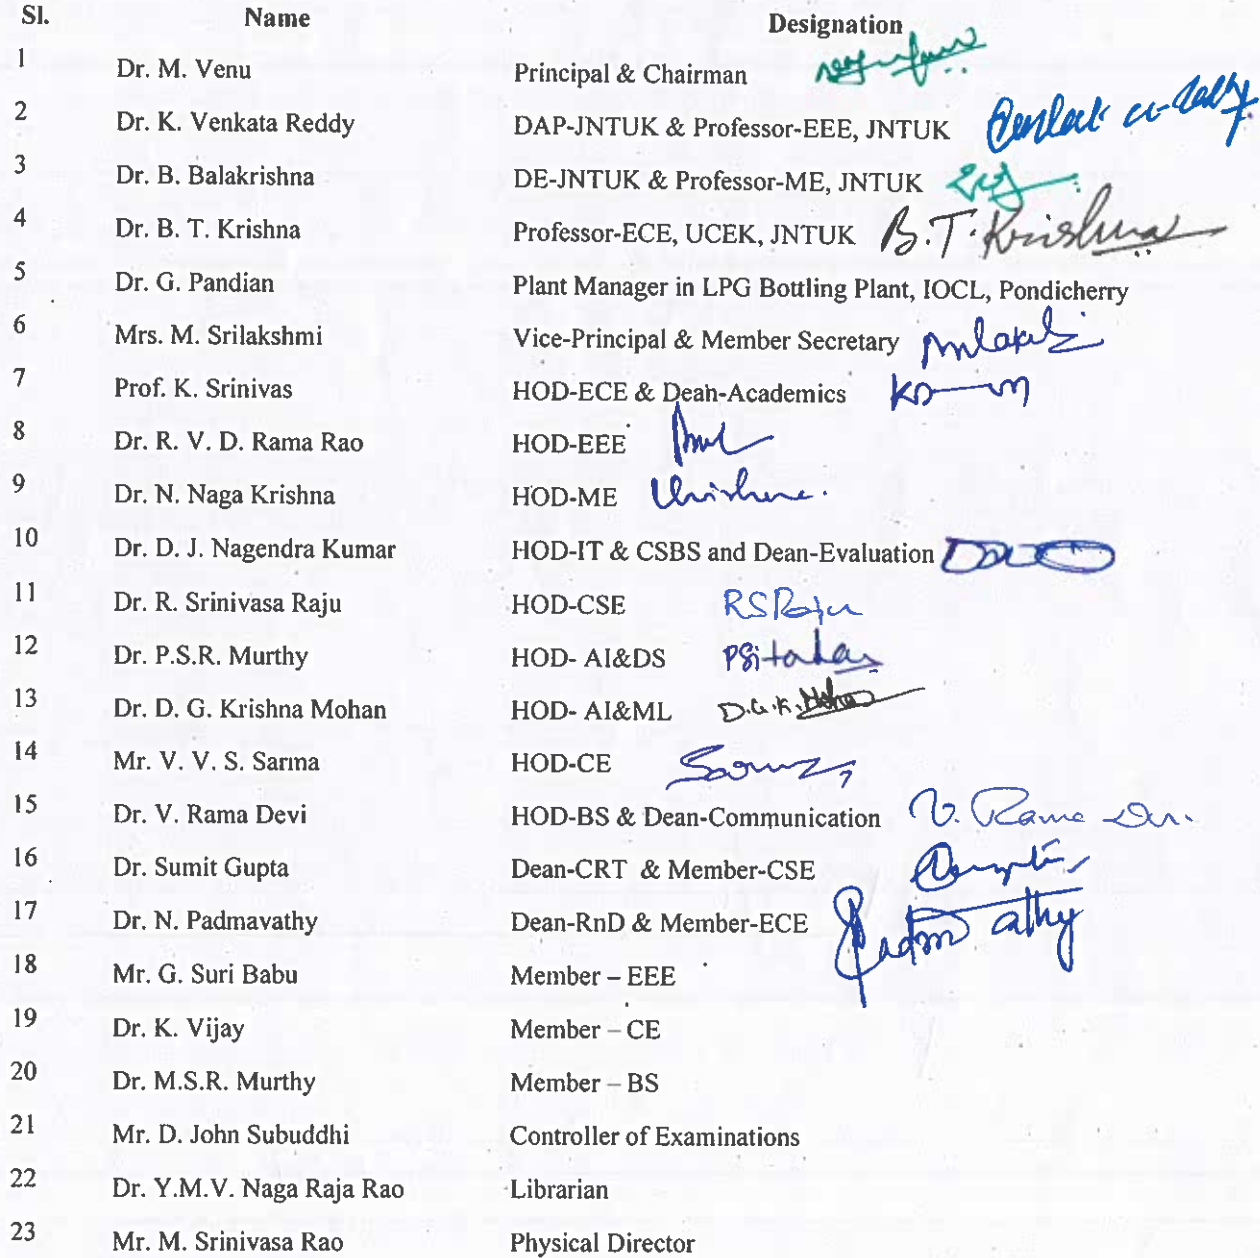 Sl. Name Designation
1 Dr. M. Venu Principal & Chairman
2 Dr. K. Venkata Reddy DAP-JNTUK & Professor-EEE, JNTUK
3 Dr. B. Balakrishna DE-JNTUK & Professor-ME, JNTUK
4 Dr. B. T. Krishna Professor-ECE, UCEK, JNTUK B.T. Krishna
5 Dr. G. Pandian Plant Manager in LPG Bottling Plant, IOCL, Pondicherry
6 Mrs. M. Srilakshmi Vice-Principal & Member Secretary
7 Prof. K. Srinivas HOD-ECE & Dean-Academics
8 Dr. R. V. D. Rama Rao HOD-EEE
9 Dr. N. Naga Krishna HOD-ME
10 Dr. D. J. Nagendra Kumar HOD-IT & CSBS and Dean-Evaluation
11 Dr. R. Srinivasa Raju HOD-CSE RSRaju
12 Dr. P.S.R. Murthy HOD- AI&DS
13 Dr. D. G. Krishna Mohan HOD- AI&ML D.G.K. Mohan
14 Mr. V. V. S. Sarma HOD-CE
15 Dr. V. Rama Devi HOD-BS & Dean-Communication V. Rama Devi
16 Dr. Sumit Gupta Dean-CRT & Member-CSE
17 Dr. N. Padmavathy Dean-RnD & Member-ECE
18 Mr. G. Suri Babu Member – EEE
19 Dr. K. Vijay Member – CE
20 Dr. M.S.R. Murthy Member – BS
21 Mr. D. John Subuddhi Controller of Examinations
22 Dr. Y.M.V. Naga Raja Rao Librarian
23 Mr. M. Srinivasa Rao Physical Director